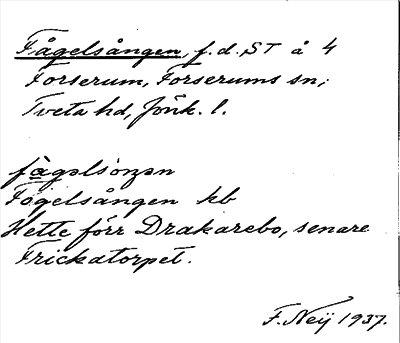 Fågelsången, f.d. ST å 4
Forserum, Forserums sn,
Tveta hd, Jönk. l.
fàgəlsòŋən
Fogelsången kb
Hette förr Drakarebo, senare
Frickatorpet.
F. Neij 1937.